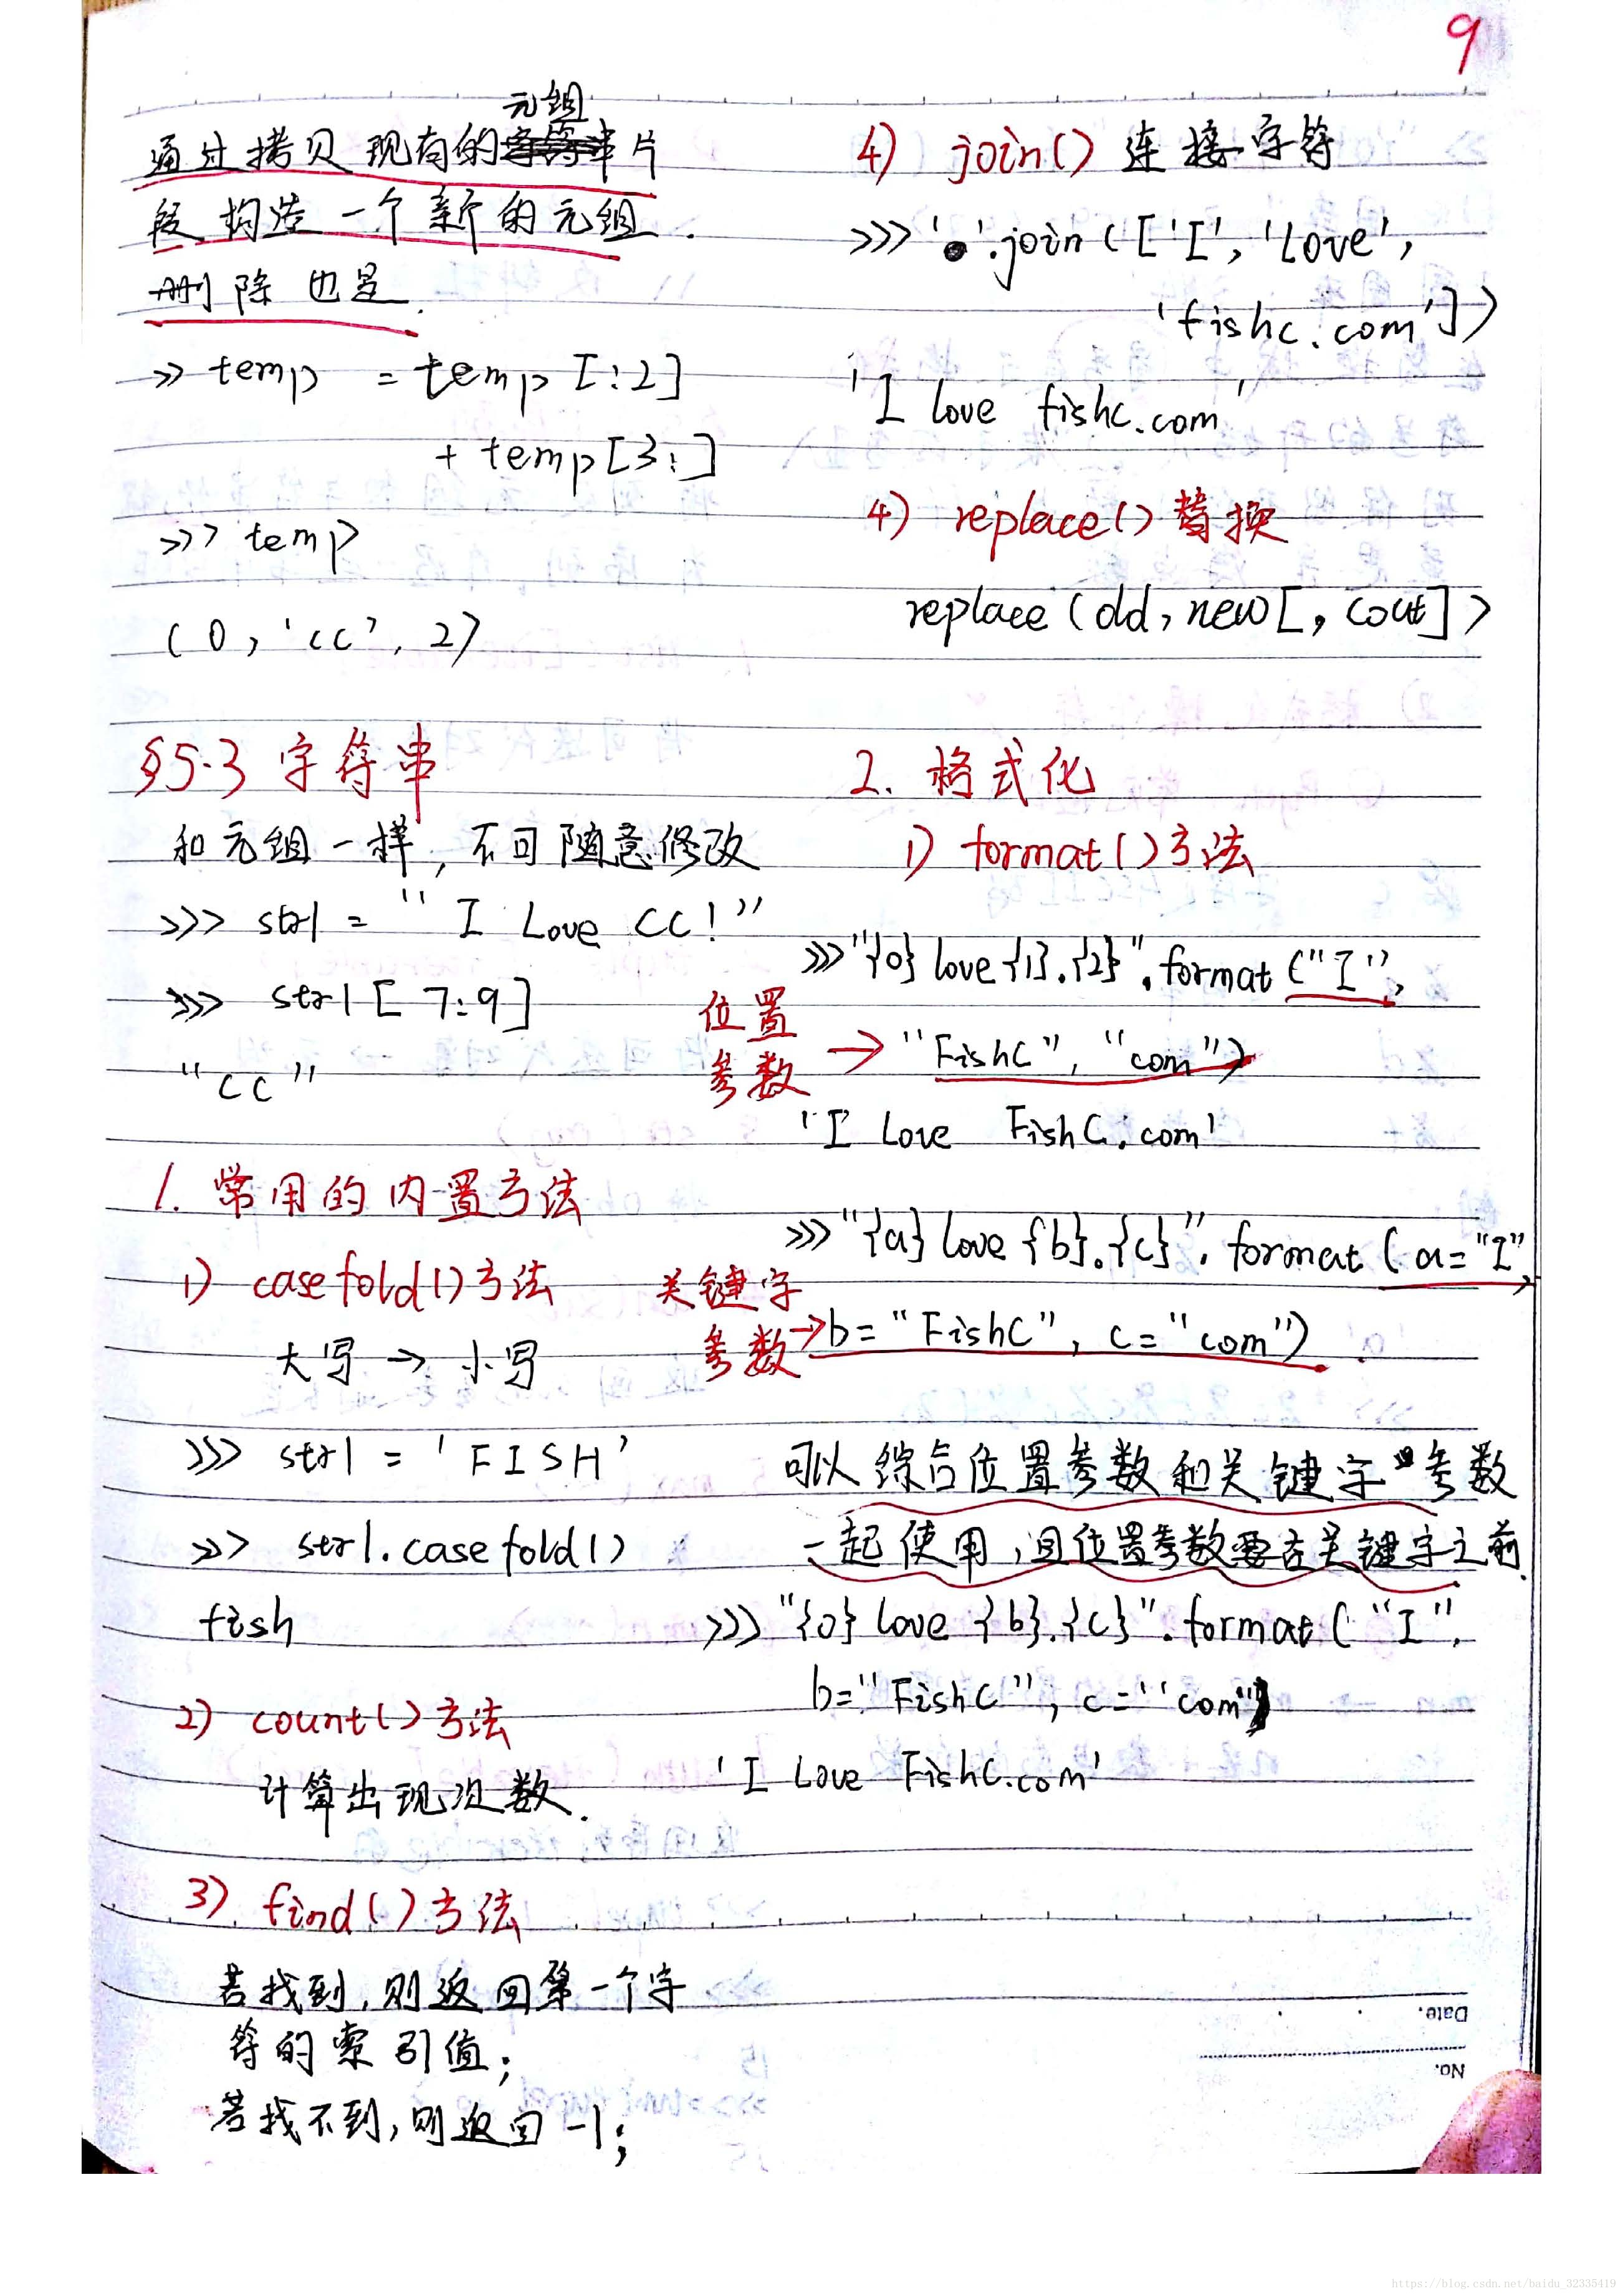 9
通过拷贝现有的元组片
段构造一个新的元组.
删除也是.
>> temp = temp [:2]
+ temp[3:]
>>> temp
(0, 'cc', 2)
§5.3 字符串
和元组一样, 不可随意修改
>>> str1 = "I Love CC!"
>>> str1 [7:9]
"CC"
1. 常用的内置方法
1) casefold()方法
大写 → 小写
>>> str1 = 'FISH'
>>> str1.casefold()
fish
2) count()方法
计算出现次数.
3) find()方法
若找到, 则返回第一个字
符的索引值;
若找不到, 则返回 -1;
4) join() 连接字符
>>> ' '.join(['I', 'Love',
'fishc.com'])
'I love fishc.com'
4) replace() 替换
replace(old, new[, cout])
2. 格式化
1) format()方法
>>> "{0} love {1}.{2}".format("I",
位置
参数 → "FishC", "com")
'I Love FishC.com'
>>> "{a} love {b}.{c}".format(a="I",
关键字
参数 → b="FishC", c="com")
可以综合位置参数和关键字参数
一起使用, 但位置参数要在关键字之前.
>>> "{0} love {b}.{c}".format("I",
b="FishC", c="com")
'I Love FishC.com'
Date.
No.
https://blog.csdn.net/baidu_32335419